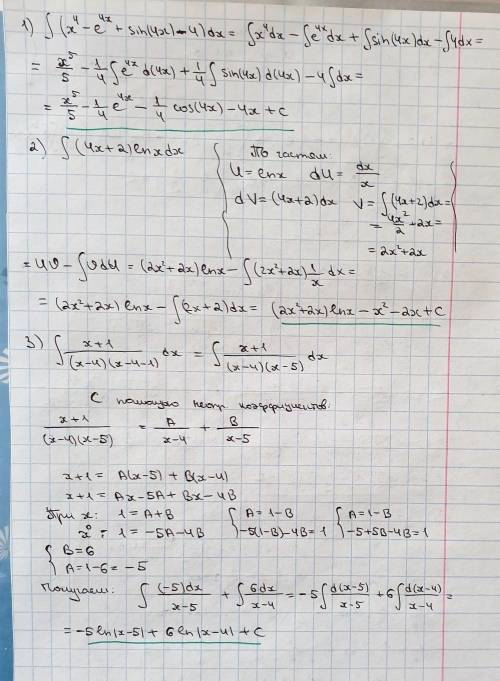 1) ∫(x⁴ - e⁴ˣ + sin(4x) - 4)dx = ∫x⁴dx - ∫e⁴ˣdx + ∫sin(4x)dx - ∫4dx =
= x⁵/5 - 1/4 ∫e⁴ˣ d(4x) + 1/4 ∫ sin(4x) d(4x) - 4∫dx =
= x⁵/5 - 1/4 e⁴ˣ - 1/4 cos(4x) - 4x + c
2) ∫(4x+2)lnxdx
По частям:
U = lnx dU = dx/x
dV = (4x+2)dx V = ∫(4x+2)dx =
= 4x²/2 + 2x =
= 2x² + 2x
= UV - ∫VdU = (2x²+2x)lnx - ∫(2x²+2x) 1/x dx =
= (2x²+2x)lnx - ∫(2x+2)dx = (2x²+2x)lnx - x² - 2x + C
3) ∫ (x+1)/((x-4)(x-4-1)) dx = ∫ (x+1)/((x-4)(x-5)) dx
С помощью неопр. коэффициентов:
(x+1)/((x-4)(x-5)) = A/(x-4) + B/(x-5)
x+1 = A(x-5) + B(x-4)
x+1 = Ax - 5A + Bx - 4B
При x: 1 = A+B { A = 1-B { A = 1-B
x⁰: 1 = -5A - 4B -5(1-B) - 4B = 1 -5 + 5B - 4B = 1
{ B = 6
A = 1-6 = -5
Получаем: ∫ (-5)dx/(x-5) + ∫ 6dx/(x-4) = -5∫ d(x-5)/(x-5) + 6∫ d(x-4)/(x-4) =
= -5 ln|x-5| + 6 ln|x-4| + C